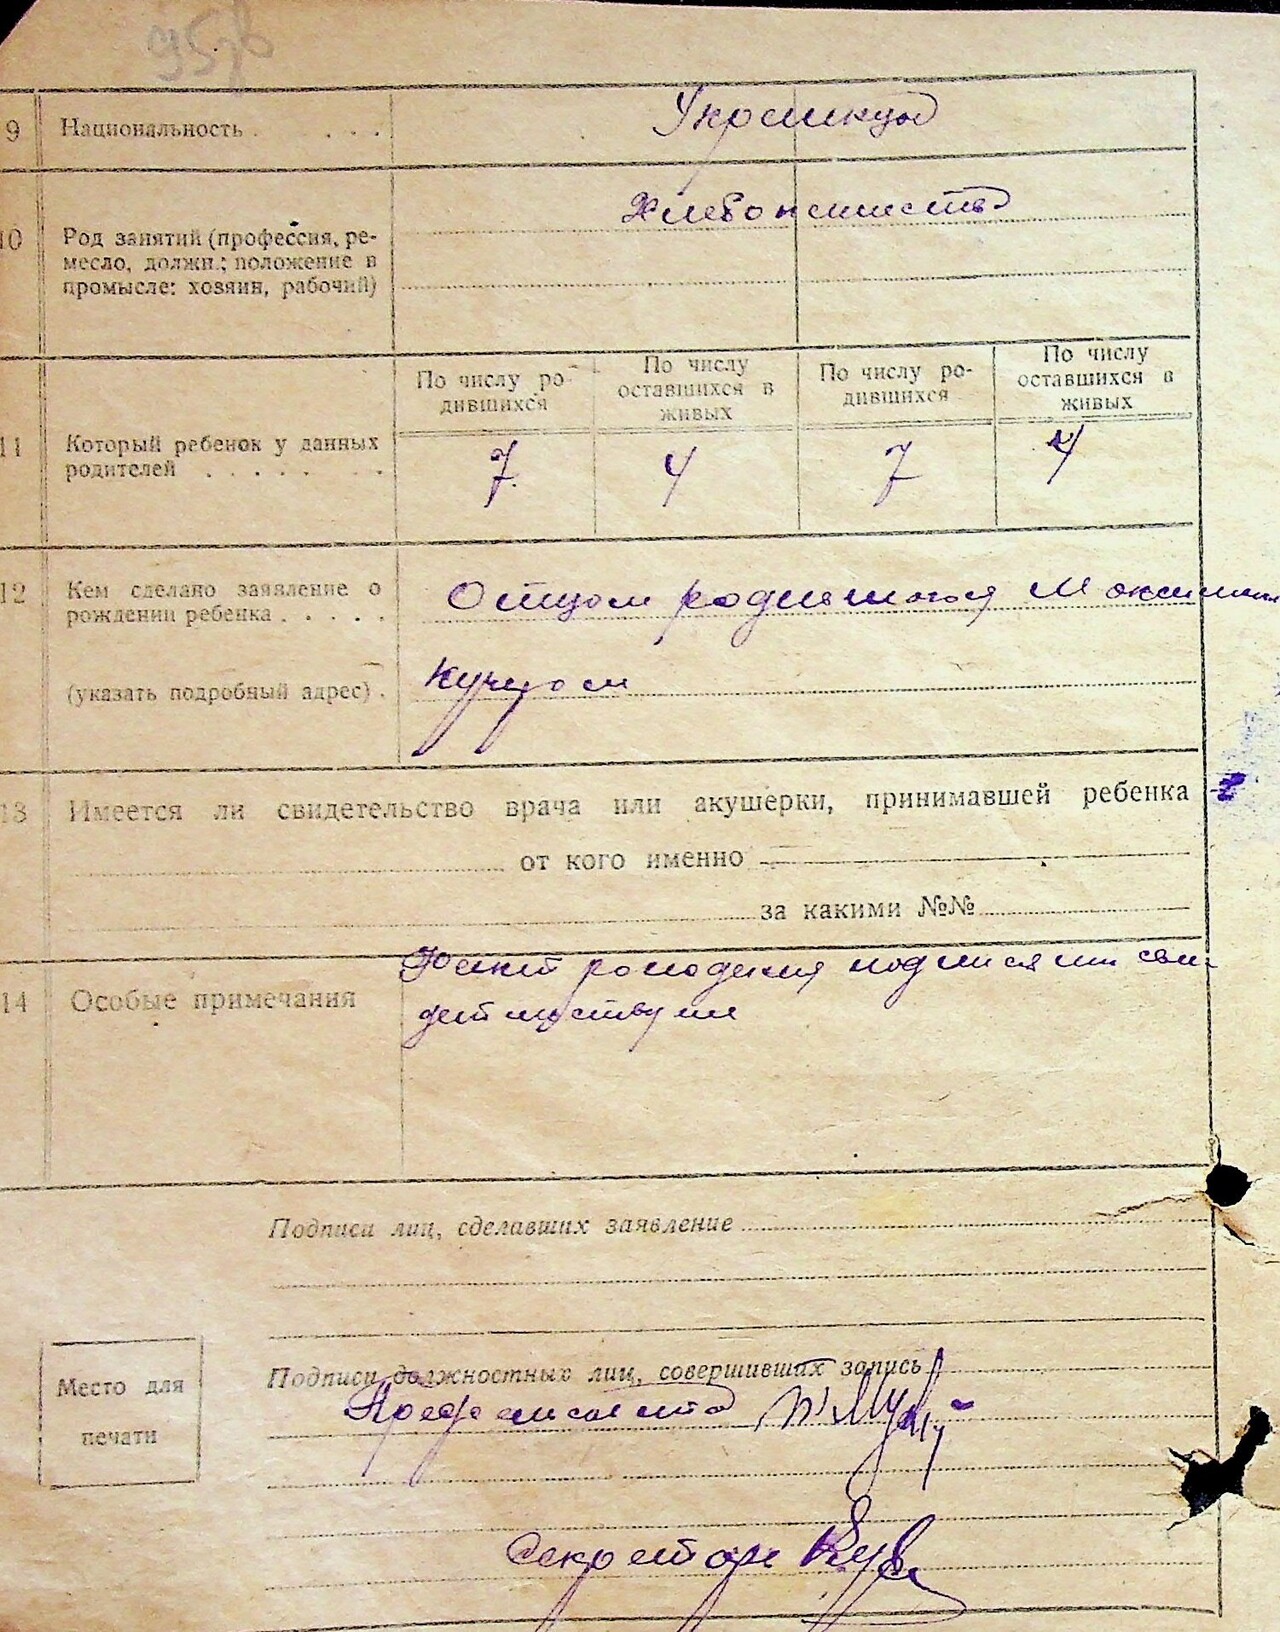 9 Национальность . . . . . Украинцы
Хлебопашество
10 Род занятий (профессия, ре-
месло, должн.; положение в
промысле: хозяин, рабочий)
По числу ро-
дившихся
По числу
оставшихся в
живых
По числу ро-
дившихся
По числу
оставшихся в
живых
11 Который ребенок у данных
родителей . . . . . 7 4 7 4
12 Кем сделано заявление о
рождении ребенка . . . . . Отцом родившагося
(указать подробный адрес) .
13 Имеется ли свидетельство врача или акушерки, принимавшей ребенка
от кого именно
за какими №№
Факт подписями сви-
14 Особые примечания
Подписи лиц, сделавших заявление
Подписи должностных лиц, совершивших запись
Место для
печати
Секретарь